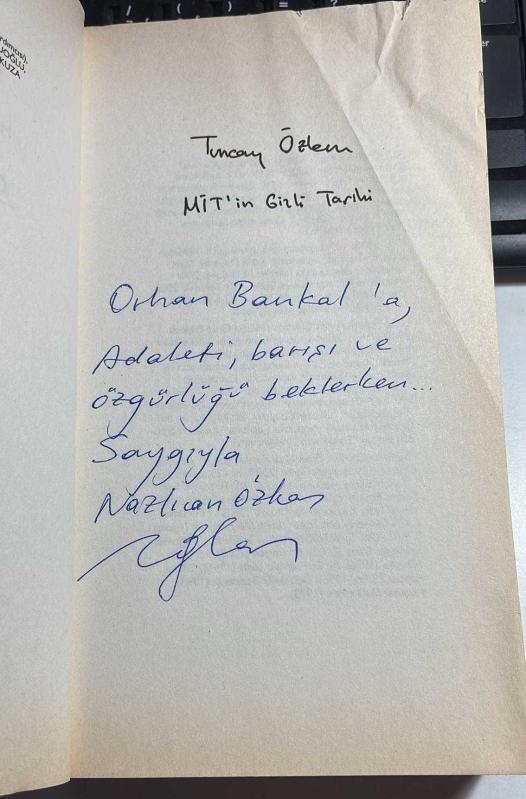 Tuncay Özkan
MİT'in Gizli Tarihi
Orhan Bankal'a,
Adaleti, barışı ve
özgürlüğü beklerken...
Saygıyla
Nazlıcan Özkan